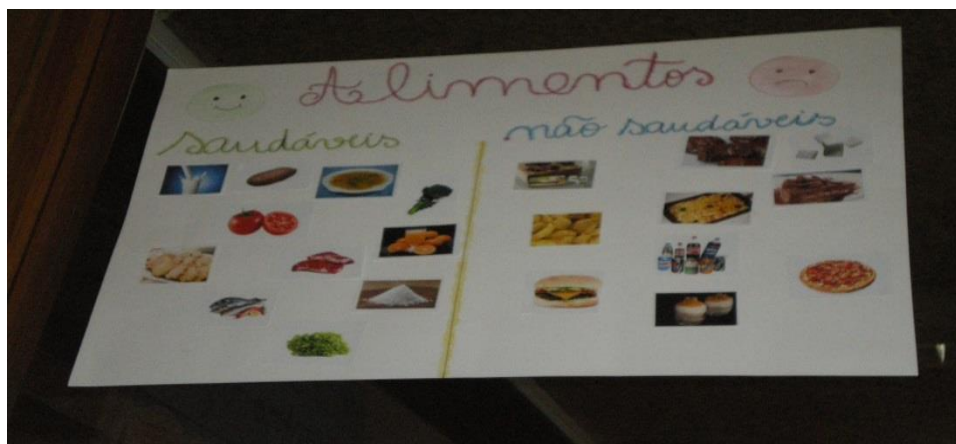 Alimentos
saudáveis
não saudáveis